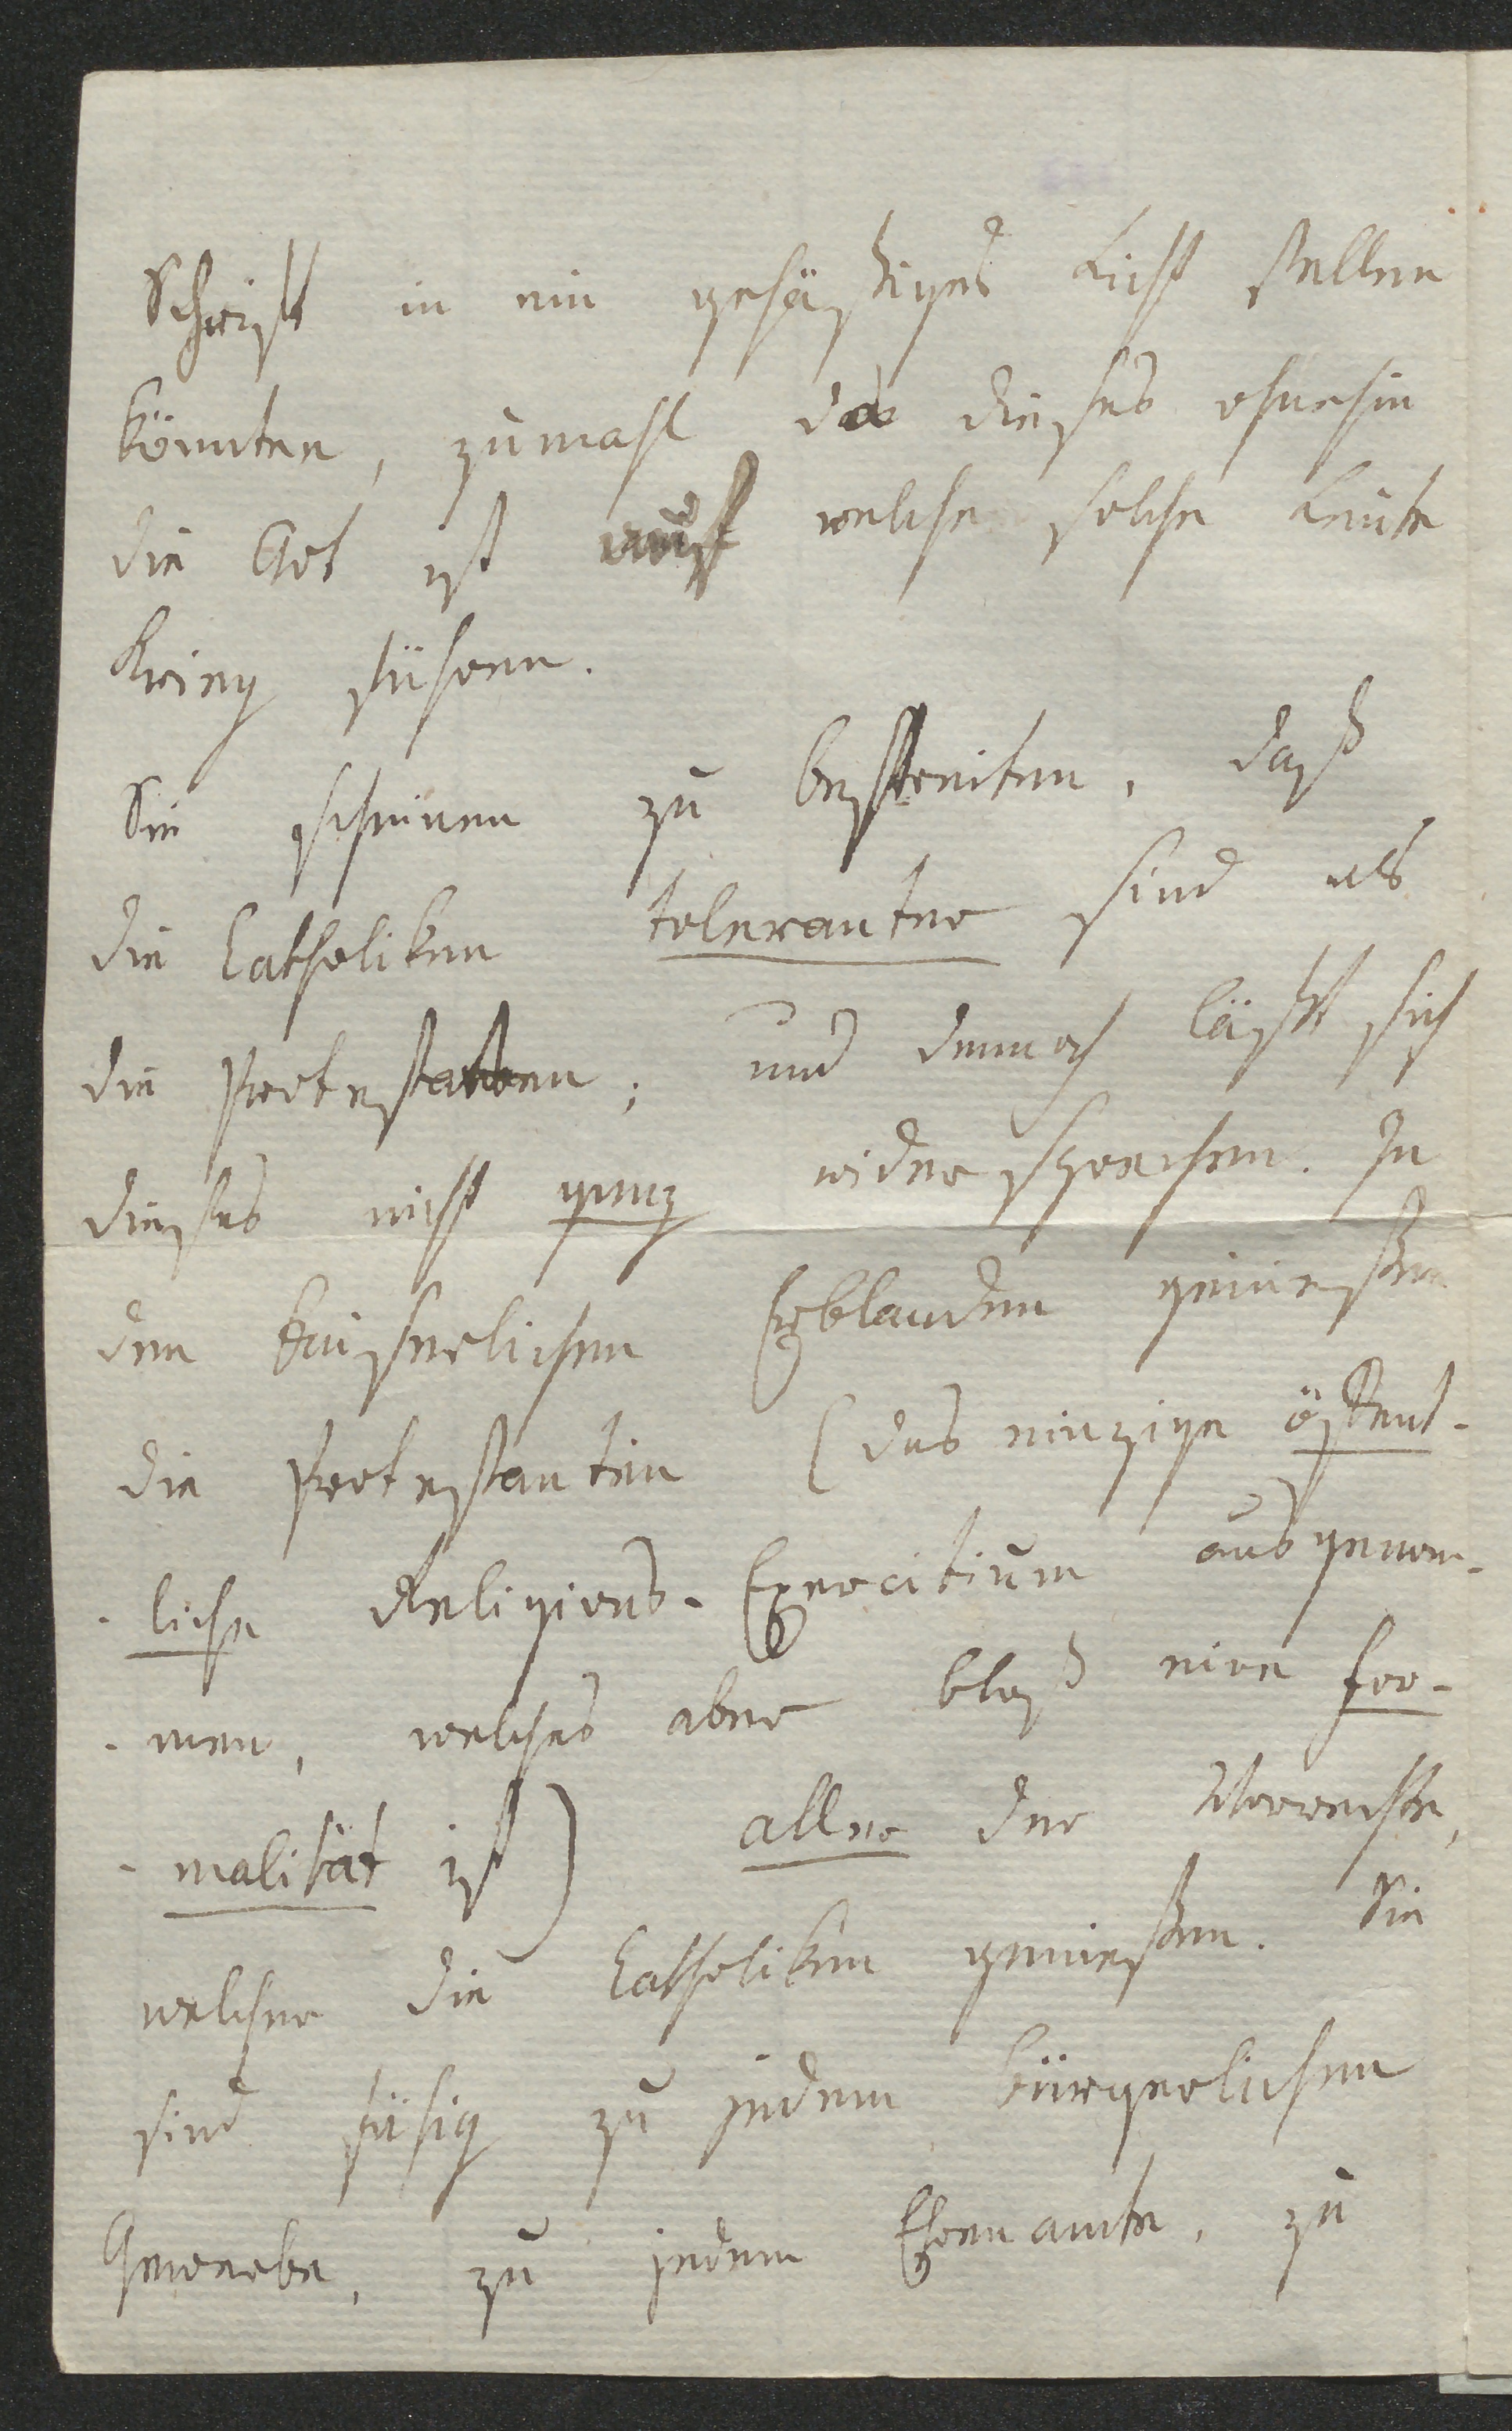 Schrift in ein gehäßiges Licht stellen
könnten, zumahl da dieses ohnehin
die Art ist auf welche solche Leute
Krieg führen.
Sie scheinen zu bestreiten, daß
die Catholiken toleranter sind als
die Protestanten; und dennoch läßt sich
dieses nicht ganz widersprechen. In
den kaiserlichen Erblanden genießen
die Protestanten (das einzige öffent-
-liche Religions-Exercitium ausgenom-
-men, welches aber bloß eine for-
-malität ist) aller der Vorrechte,
welcher die Catholiken genießen. Sie
sind fähig zu jedem bürgerlichen
Gewerbe, zu jedem Ehrenamte, zu